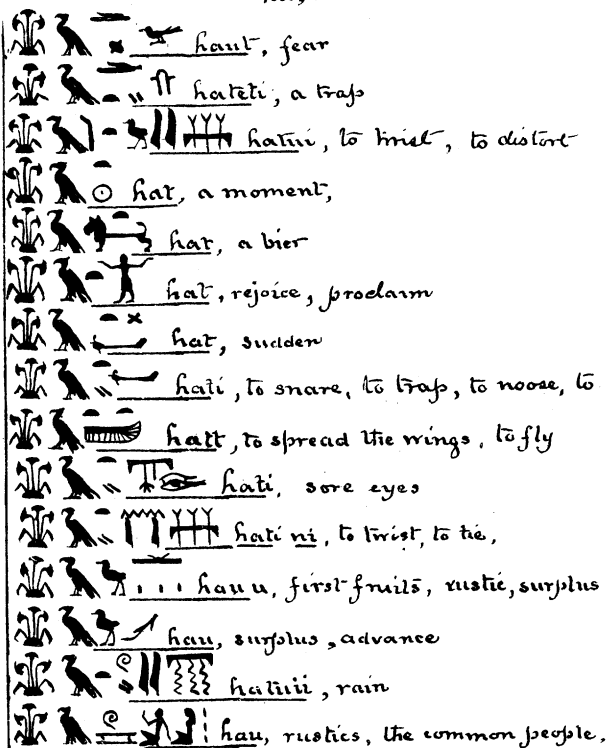 haut, fear
hateti, a trap
hatui, to twist, to distort
hat, a moment,
hat, a bier
hat, rejoice, proclaim
hat, sudden
hati, to snare, to trap, to noose, to
hatt, to spread the wings, to fly
hati, sore eyes
hati ni, to twist, to tie,
hau u, first fruits, rustic, surplus
hau, surplus, advance
hatuii, rain
hau, rustics, the common people,